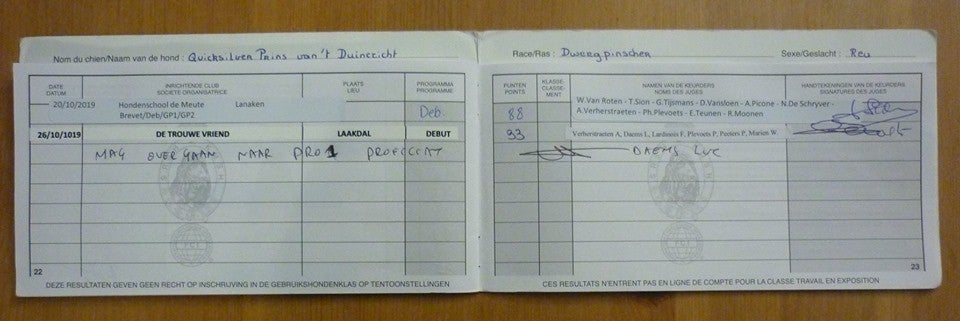 Nom du chien/Naam van de hond : Quicksilver Prins van 't Duinzicht
DATE
DATUM
INRICHTENDE CLUB
SOCIETE ORGANISATRICE
PLAATS
LIEU
PROGRAMMA
PROGRAMME
20/10/2019 Hondenschool de Meute Lanaken Deb.
Brevet/Deb/GP1/GP2
26/10/1019 DE TROUWE VRIEND LAAKDAL DEBUT
MAG OVER GAAN NAAR PRO 1
22
DEZE RESULTATEN GEVEN GEEN RECHT OP INSCHRIJVING IN DE GEBRUIKSHONDENKLAS OP TENTOONSTELLINGEN
Race/Ras : Dwergpinscher Sexe/Geslacht : Reu
PUNTEN
POINTS
KLASSE-
CLASSE-
MENT
NAMEN VAN DE KEURDERS
NOMS DES JUGES
HANDTEKENINGEN VAN DE KEURDERS
SIGNATURES DES JUGES
88 W.Van Roten - T.Sion - G.Tijsmans - D.Vansloen - A.Picone - N.De Schryver -
A.Verherstraeten - Ph.Plevoets - E.Teunen - R.Moonen
93 Verherstraeten A, Daems L, Lardinois F, Plevoets P, Peeters P, Marien W.
DAEMS LUC
F.C.I.
23
CES RESULTATS N'ENTRENT PAS EN LIGNE DE COMPTE POUR LA CLASSE TRAVAIL EN EXPOSITION